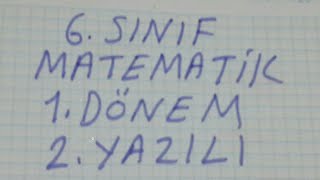 6. SINIF
MATEMATİK
1. DÖNEM
2. YAZILI